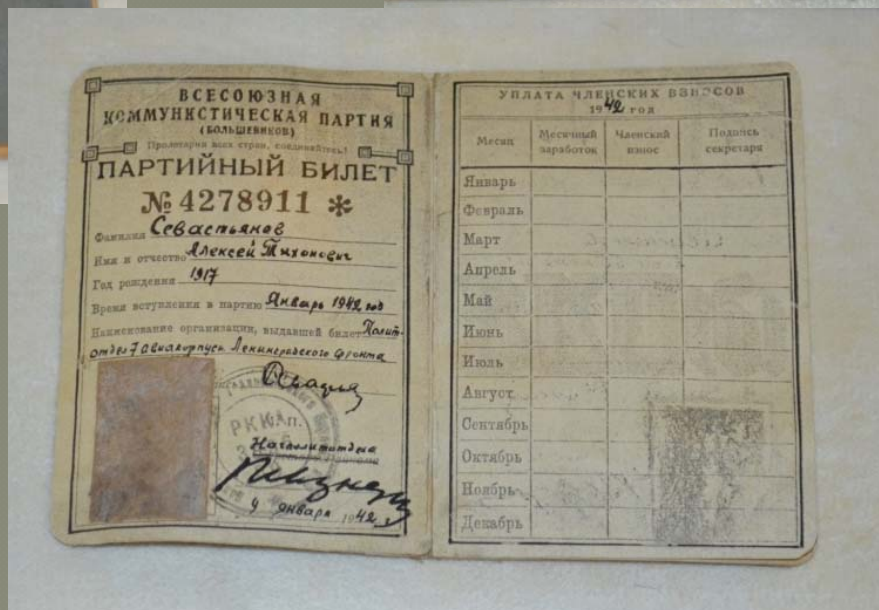 ВСЕСОЮЗНАЯ
КОММУНИСТИЧЕСКАЯ ПАРТИЯ
(БОЛЬШЕВИКОВ)
Пролетарии всех стран, соединяйтесь!
ПАРТИЙНЫЙ БИЛЕТ
№ 4278911 *
Фамилия Севастьянов
Имя и отчество Алексей Тихонович
Год рождения 1917
Время вступления в партию Январь 1942 год
Наименование организации, выдавшей билет Полит-
отдел 7 Авиакорпуса Ленинградского фронта
РККА
М.П.
Нач политотдела
9 января 1942 г.
УПЛАТА ЧЛЕНСКИХ ВЗНОСОВ
1942 ГОД
Месяц Месячный заработок Членский взнос Подпись секретаря
Январь
Февраль
Март
Апрель
Май
Июнь
Июль
Август
Сентябрь
Октябрь
Ноябрь
Декабрь